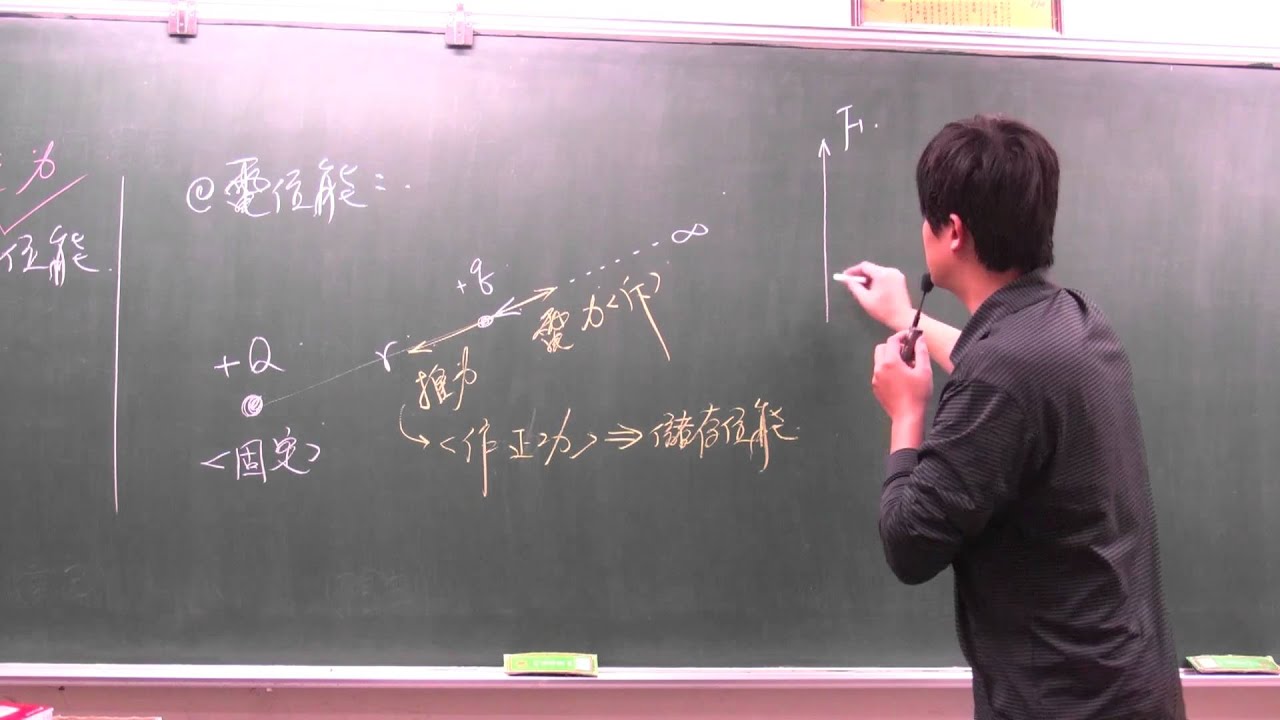 力
位能
@電位能:
∞
+q
電力<斥>
+Q
r
推力
<作正功>⇒儲存位能
<固定>
F